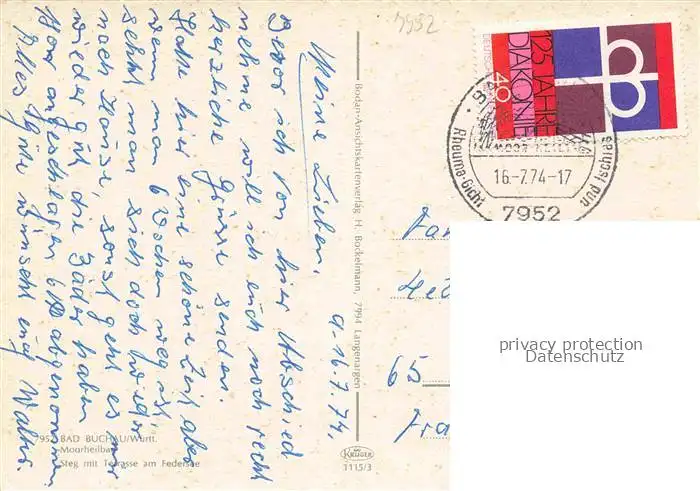 7952
d. 16.7.74.
Meine Lieben,
Bevor ich von hier Abschied
nehme will ich euch noch recht
herzliche Grüsse senden.
Hatte hier eine schöne Zeit aber
wenn man 6 Wochen weg ist
sehnt man sich doch wieder
nach Hause sonst geht es mir
wieder gut die Bäder haben
abgenommen
Alles Gute wünscht euch Walter.
DEUTSCHE
40
125 JAHRE
DIAKONIE
Rheuma-Gicht
und Ischias
16.-7.74-17
7952
65
Fra
Bodan-Ansichtskartenverlag H. Bockelmann, 7994 Langenargen
7952 BAD BUCHAU/Württ.
Moorheilbad
Steg mit Terrasse am Federsee
KRÜGER
1115/3
privacy protection
Datenschutz